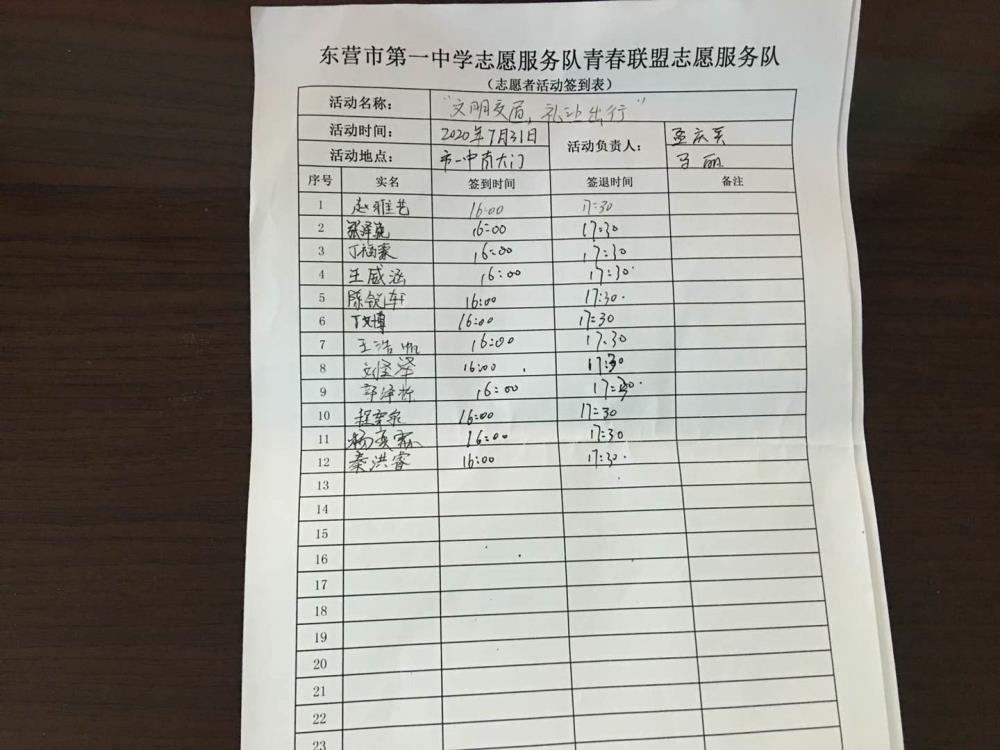 东营市第一中学志愿服务队青春联盟志愿服务队
（志愿者活动签到表）
活动名称： "文明交 , 礼让出行"
活动时间： 2020年7月31日 活动负责人： 孟庆
活动地点： 市一中南大门 马丽
序号 实名 签到时间 签退时间 备注
1 赵雅艺 16:00 17:30
2 张泽 16:00 17:30
3 丁福 16:00 17:30
4 王威涵 16:00 17:30
5 陈锐轩 16:00 17:30
6 丁文博 16:00 17:30
7 王浩 16:00 17:30
8 刘 泽 16:00 17:30
9 郭泽 16:00 17:30
10 程 16:00 17:30
11 杨奕霖 16:00 17:30
12 秦洪睿 16:00 17:30
13
14
15
16
17
18
19
20
21
22
23